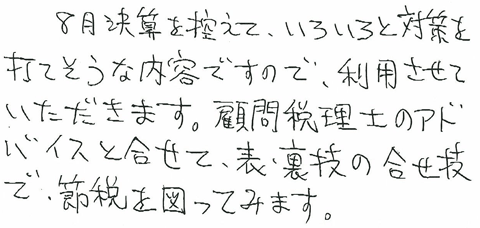 8月決算を控えて、いろいろと対策を
打てそうな内容ですので、利用させて
いただきます。顧問税理士のアド
バイスと合せて、表・裏技の合せ技
で、節税を図ってみます。